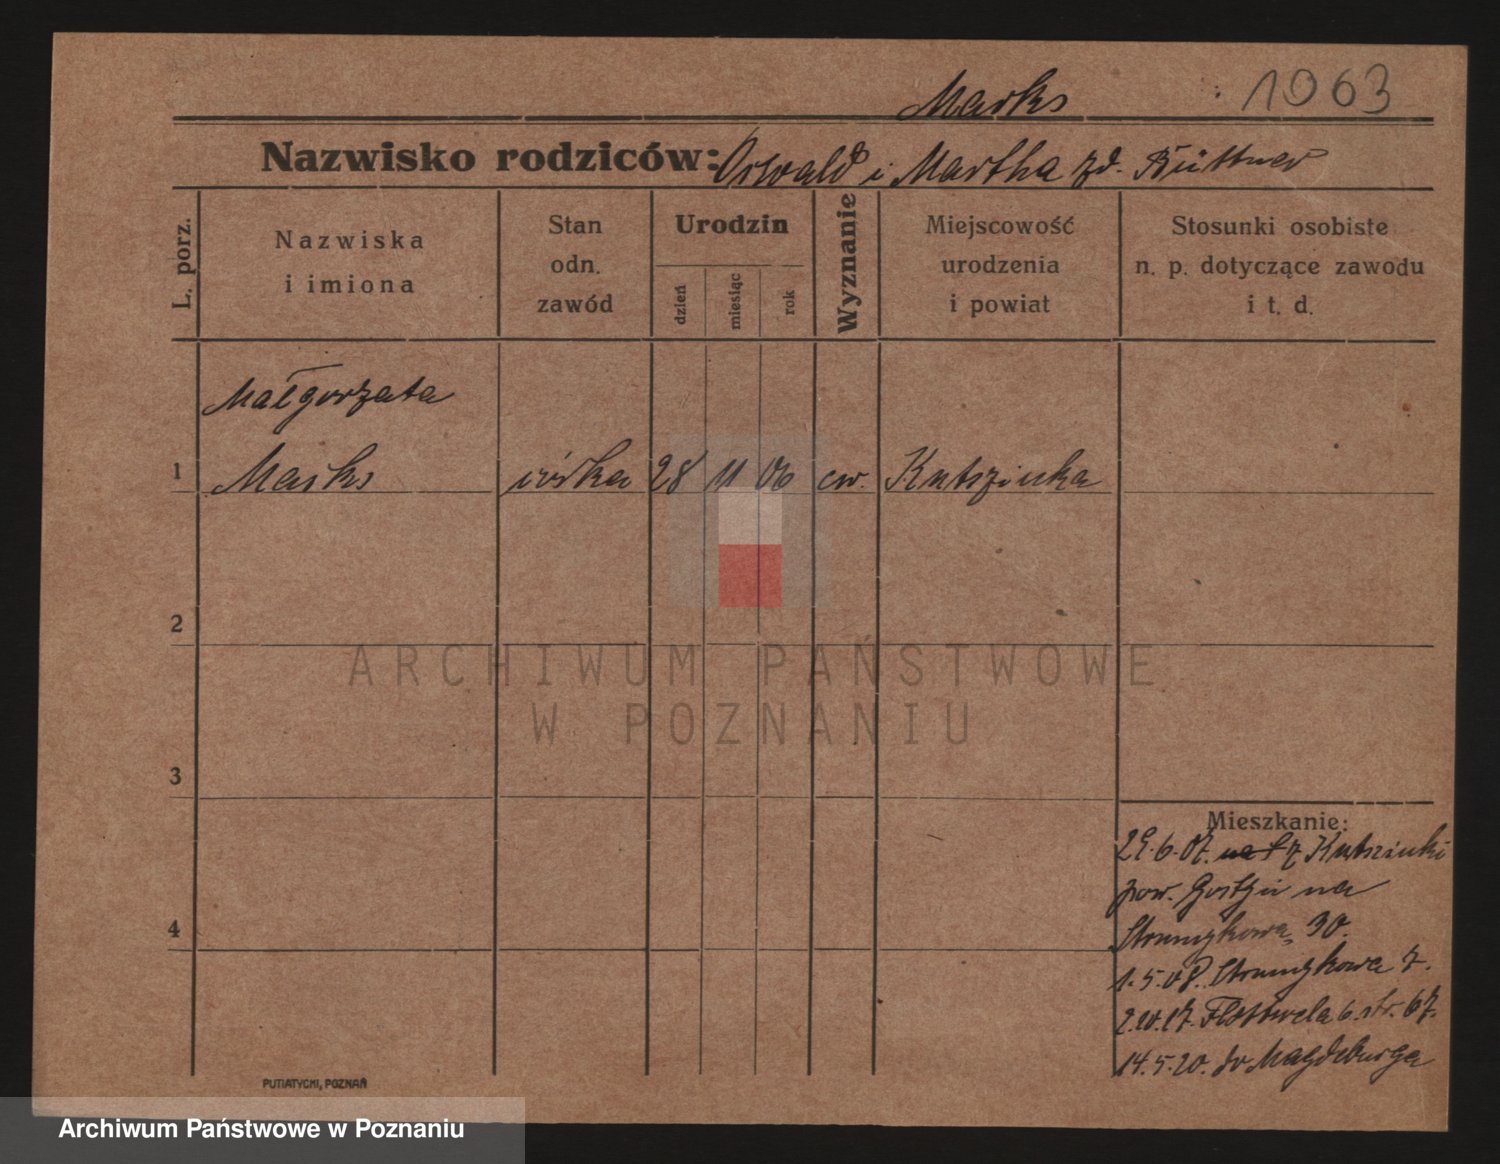 Marks 1963
Nazwisko rodziców: Oswald i Martha zd. Büttner
L. porz.
Nazwiska
i imiona
Stan
odn.
zawód
Urodzin
dzień
miesiąc
rok
Wyznanie
Miejscowość
urodzenia
i powiat
Stosunki osobiste
n. p. dotyczące zawodu
i t. d.
Małgorzata
1 Marks córka 28 11 06 ew. Kutszinka
2
3
4
Mieszkanie:
29.6.07. z Kutszinki
pow. Gostyń na
Strumykowa 30.
1.5.08. Strumykowa 7.
2.10.17. Flottwela 6. str. 67.
14.5.20. do Magdeburga
PUTIATYCKI, POZNAŃ
ARCHIWUM PAŃSTWOWE
W POZNANIU
Archiwum Państwowe w Poznaniu